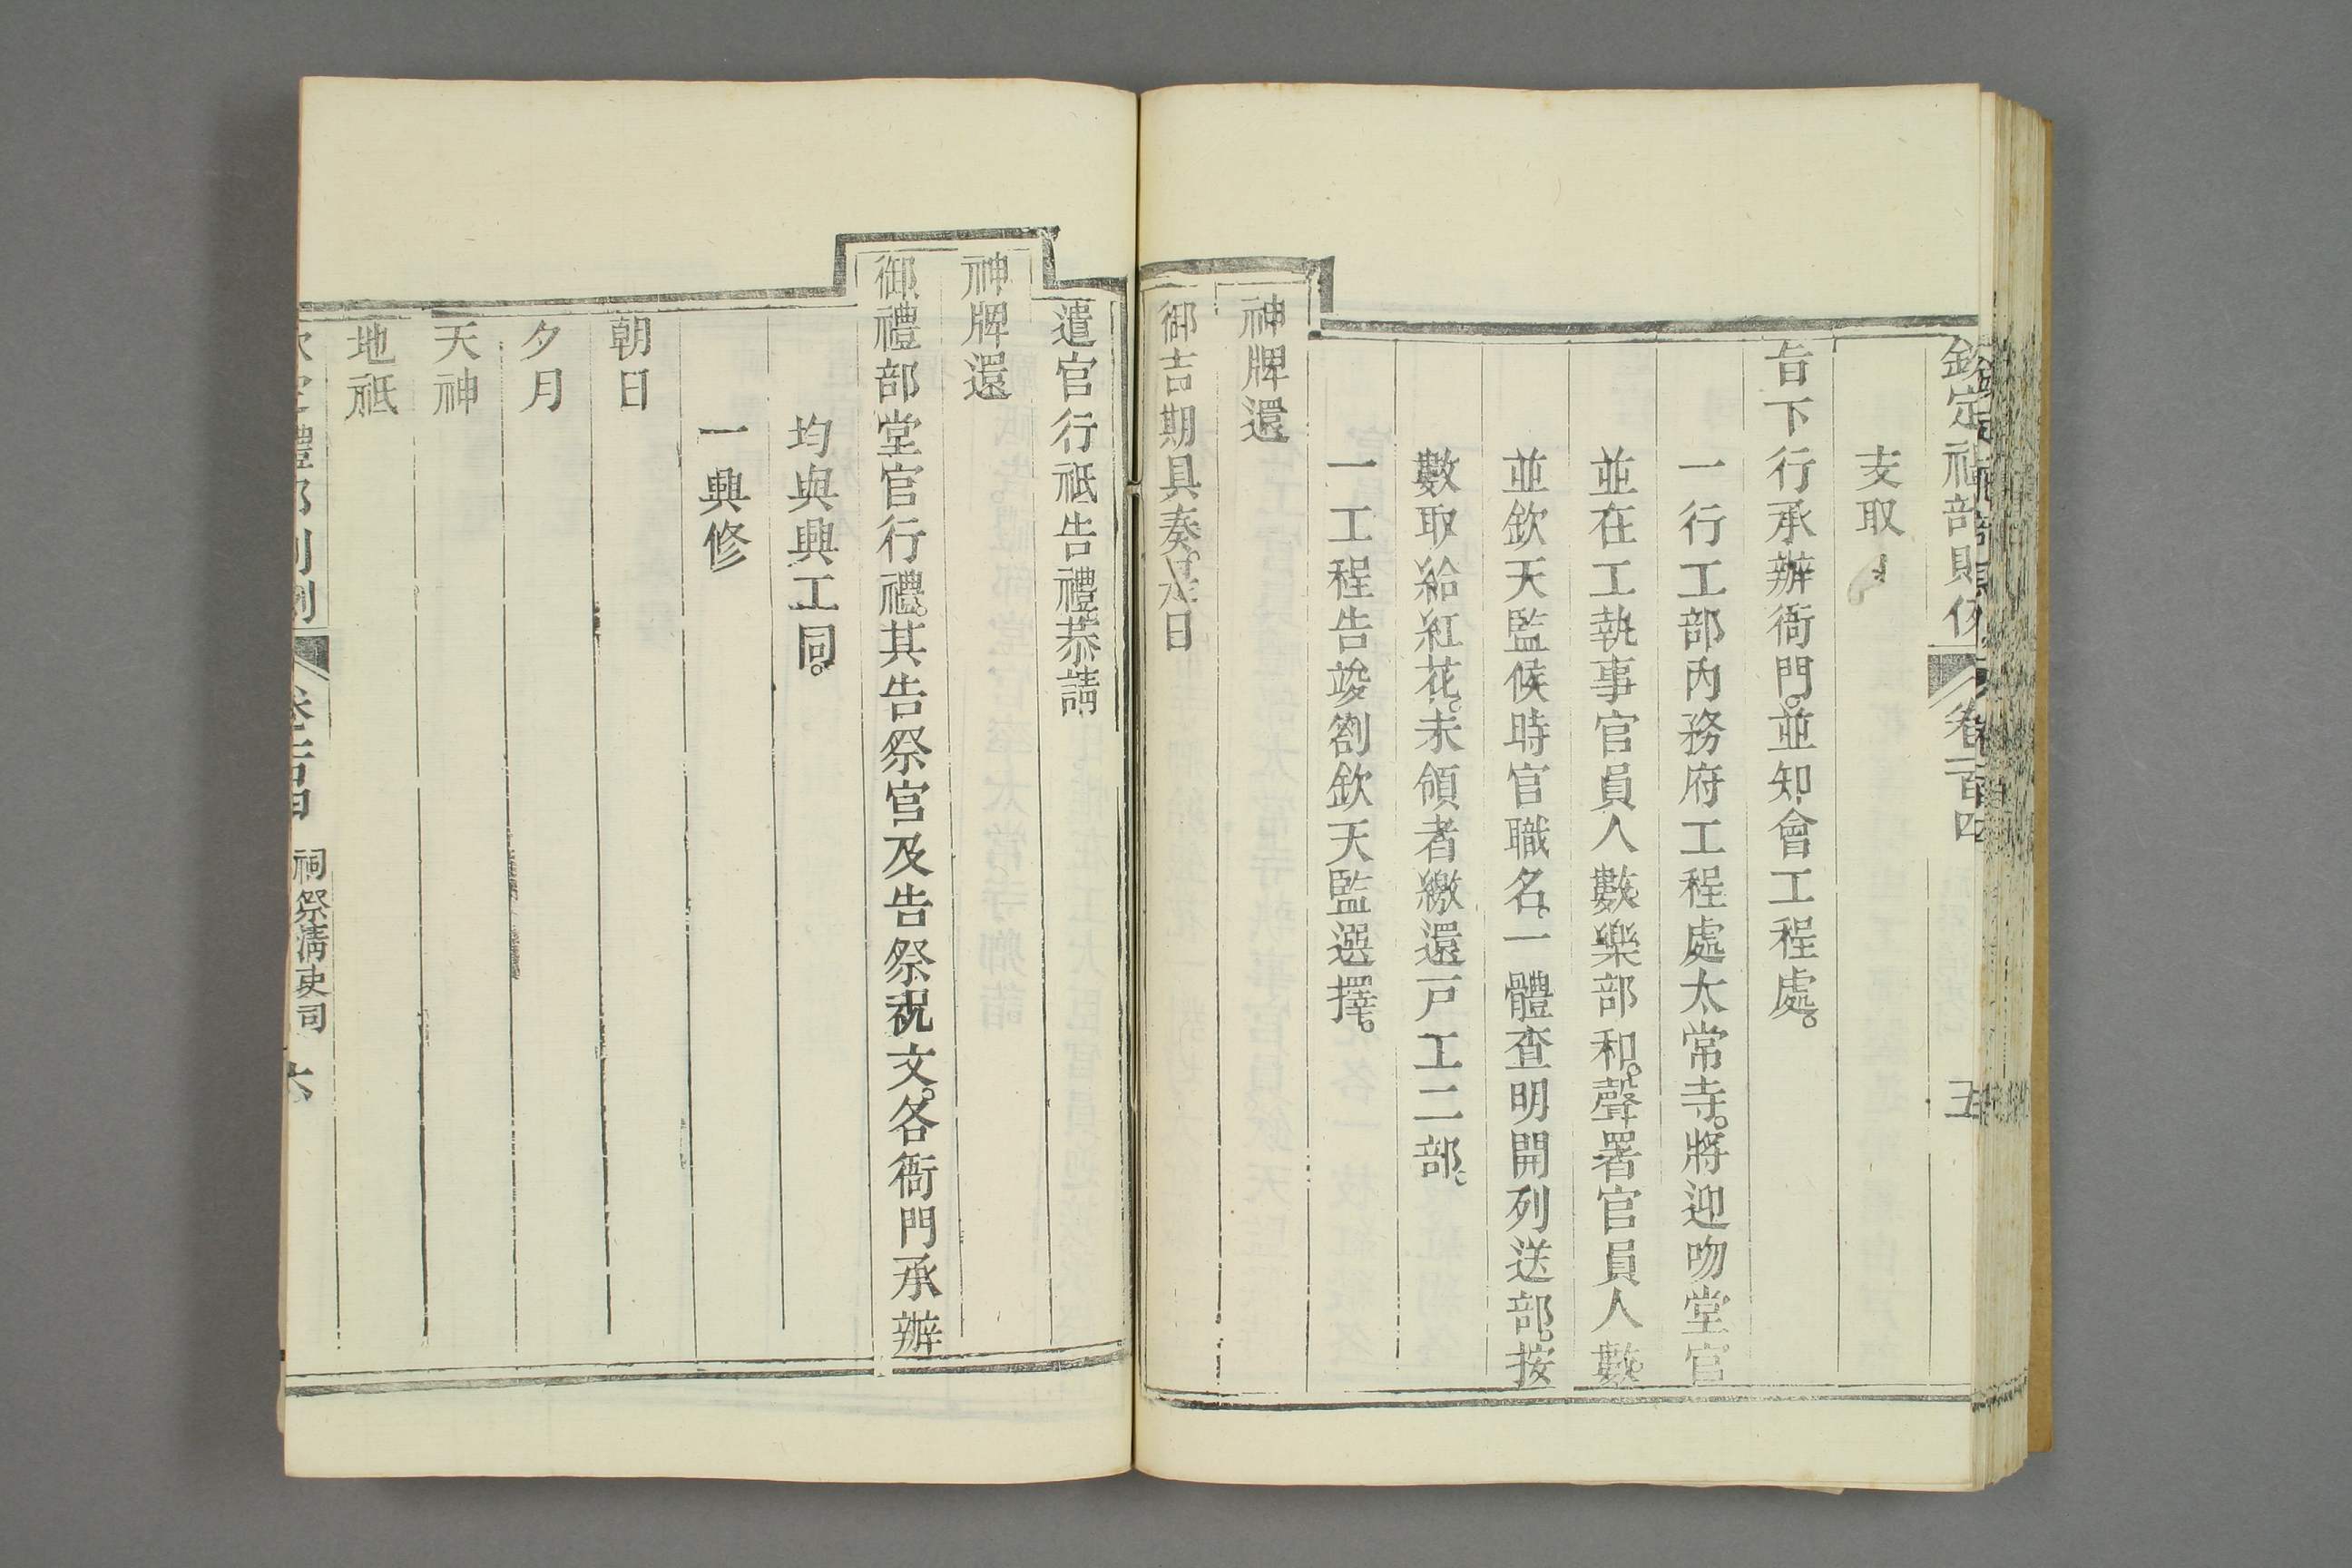 欽定禮部則例 卷一百四 五
支取
旨下行承辦衙門。並知會工程處。
一行工部內務府工程處太常寺。將迎吻堂官
並在工執事官員人數。樂部和聲署官員人數。
並欽天監候時官職名。一體查明開列送部。按
數取給紅花。未領者繳還戶工二部。
一工程告竣劄欽天監選擇。
神牌還
御吉期具奏。是日
遣官行祗告禮。恭請
神牌還
御禮部堂官行禮。其告祭官及告祭祝文。各衙門承辦
均與興工同。
一興修
朝日
夕月
天神
地祇
欽定禮部則例 卷一百四 祠祭清吏司 六